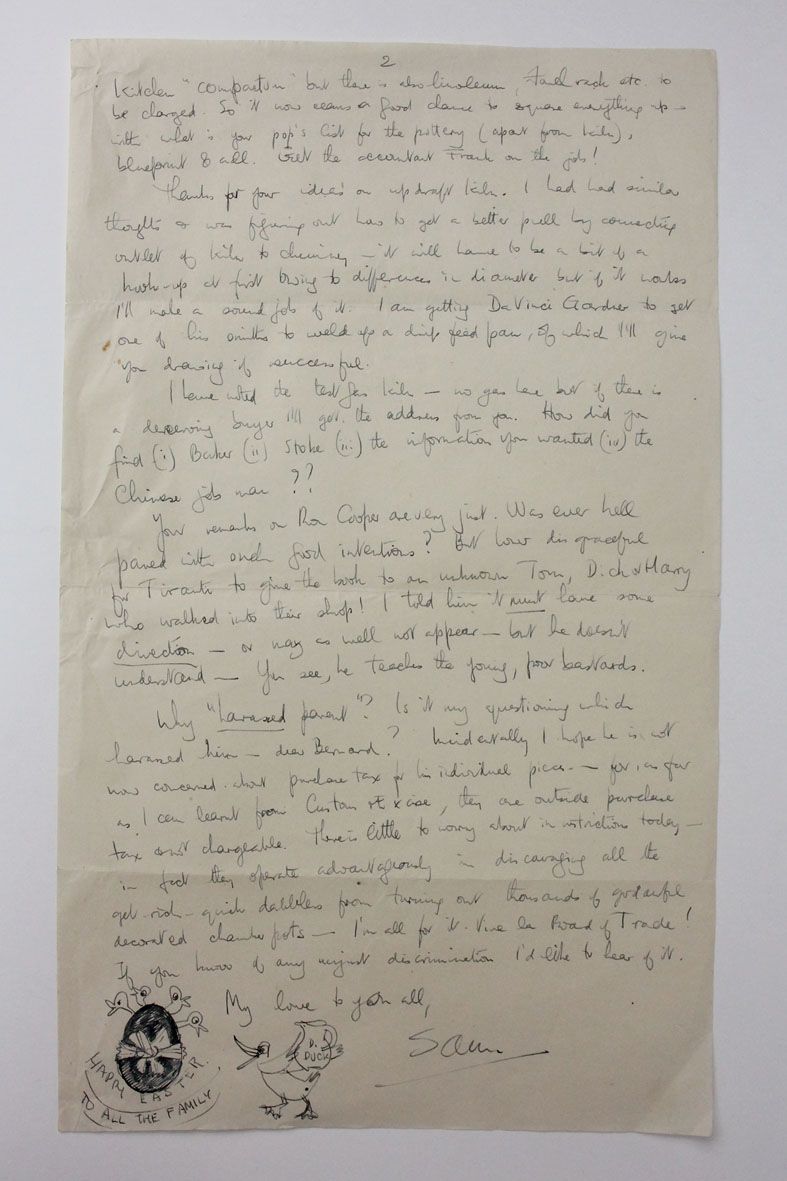 2
Kitchen "compactum" but there is also linoleum, towel rack etc. to
be charged. So it now seems a good chance to square everything up -
with what is your pop's list for the pottery (apart from kiln),
blueprint & all. Get the accountant Frank on the job!
Thanks for your ideas on updraft kiln. I had had similar
thoughts & was figuring out how to get a better pull by connecting
outlet of kiln to chimney - it will have to be a bit of a
hook-up at first owing to differences in diameter but if it works
I'll make a sound job of it. I am getting DaVinci Gardner to get
one of his smiths to weld up a drip feed pan, of which I'll give
you drawing if successful.
I have noted the test gas kiln - no gas here but if there is
a deserving buyer I'll get the address from you. How did you
find (i) Baker (ii) Stoke (iii) the information you wanted (iv) the
Chinese job man ??
Your remarks on Ron Cooper are very just. Was ever hell
paved with such good intentions? But how disgraceful
for Tiranti to give the book to an unknown Tom, Dick or Harry
who walked into their shop! I told him it must have some
direction - or may as well not appear - but he doesn't
understand - You see, he teaches the young, poor bastards.
Why "harassed parent"? Is it my questioning which
harassed him - dear Bernard? Incidentally I hope he is not
now concerned about purchase tax for his individual pieces - for, as far
as I can learn from Customs & Excise, they are outside purchase
tax & not chargeable. There is little to worry about in restrictions today -
in fact they operate advantageously in discouraging all the
get-rich-quick dabblers from turning out thousands of godawful
decorated chamber pots - I'm all for it. Vive la Board of Trade!
If you know of any unjust discrimination I'd like to hear of it.
My love to you all,
Sam
HAPPY EASTER.
TO ALL THE FAMILY
D. D
DUCK